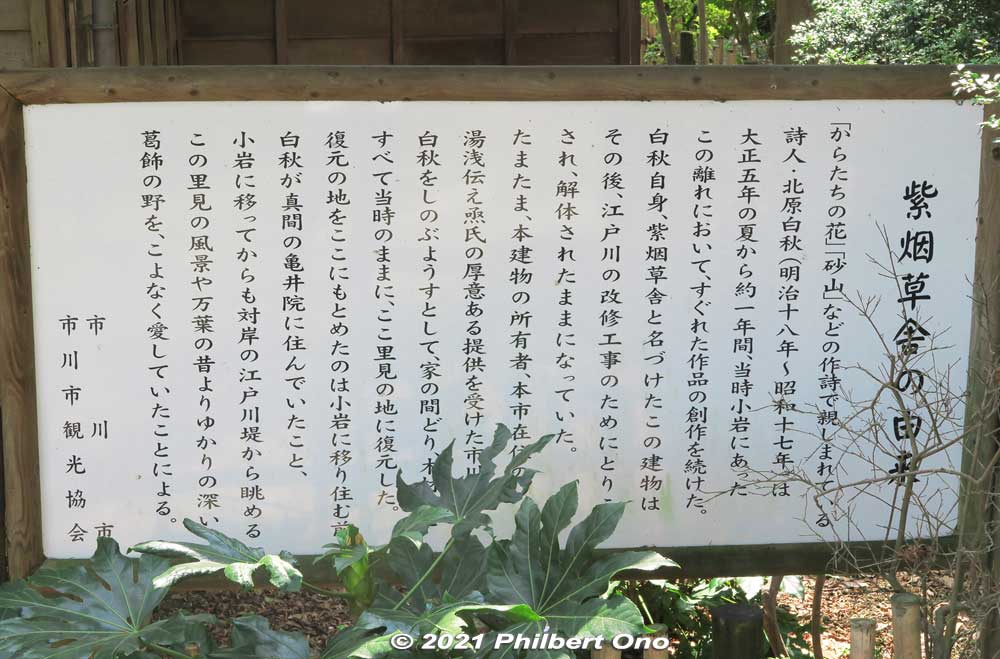 紫烟草舎の由来
「からたちの花」「砂山」などの作詩で親しまれている
詩人・北原白秋(明治十八年〜昭和十七年)は
大正五年の夏から約一年間、当時小岩にあった
この離れにおいて、すぐれた作品の創作を続けた。
白秋自身、紫烟草舎と名づけたこの建物は
その後、江戸川の改修工事のためにとりこ
され、解体されたままになっていた。
たまたま、本建物の所有者、本市在住の
湯浅伝え氏の厚意ある提供を受けた市川
白秋をしのぶようすとして、家の間どり、木
すべて当時のままに、ここ里見の地に復元した。
復元の地をここにもとめたのは小岩に移り住む前
白秋が真間の亀井院に住んでいたこと、
小岩に移ってからも対岸の江戸川堤から眺める
この里見の風景や万葉の昔よりゆかりの深い
葛飾の野を、こよなく愛していたことによる。
市川市
市川市観光協会
© 2021 Philbert Ono